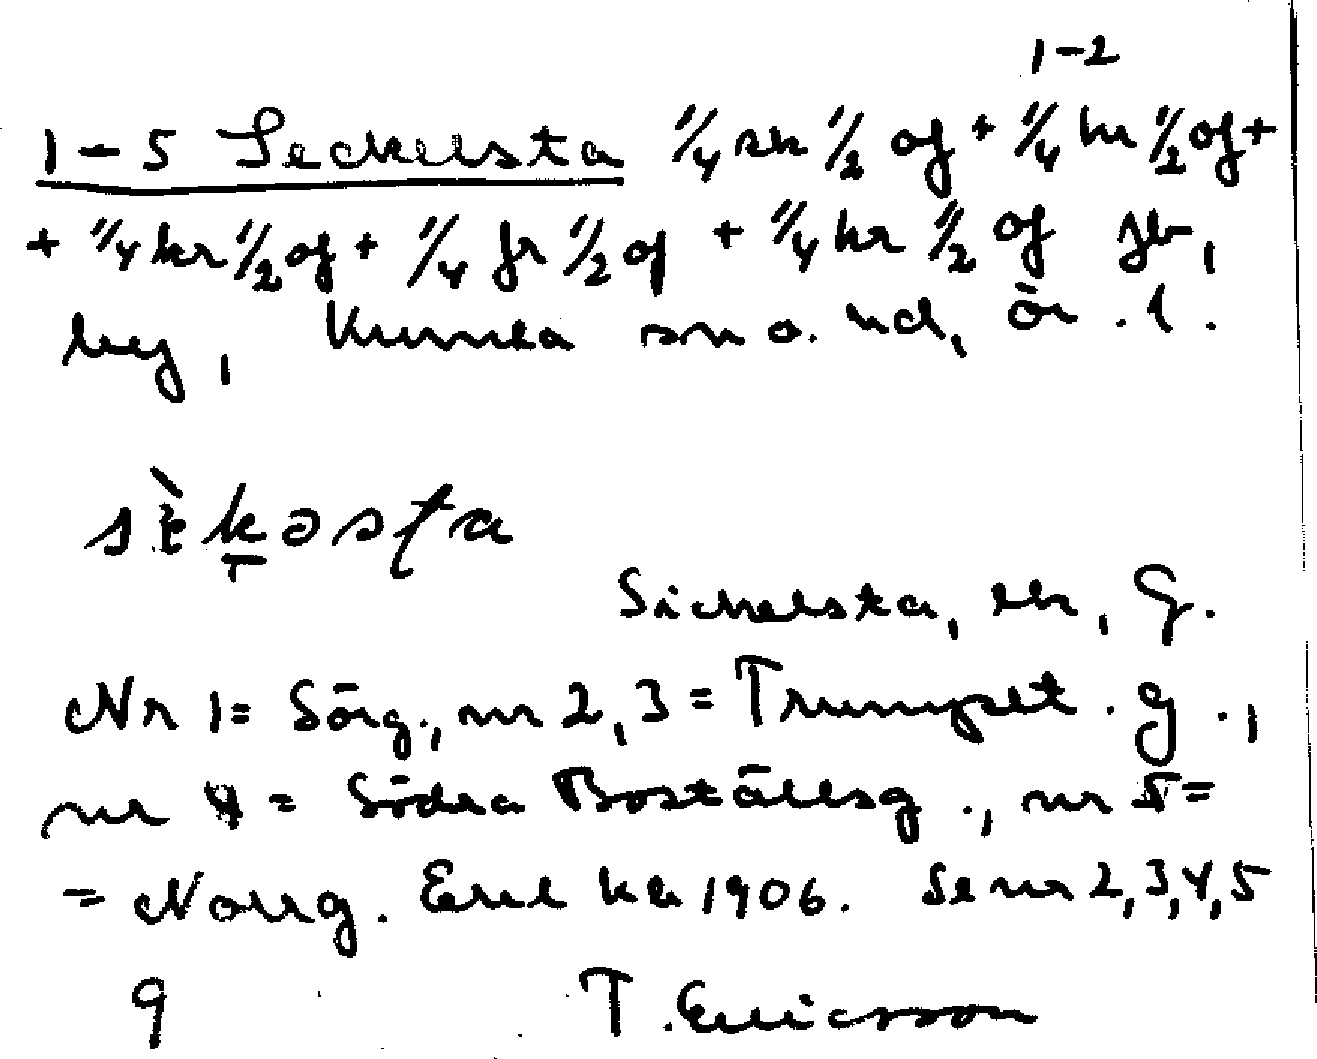 1-2
1-5 Seckelsta 1/4 sk 1/2 of + 1/4 kr 1/2 of +
+ 1/4 kr 1/2 of + 1/4 fr 1/2 of + 1/4 kr 1/2 of jb,
bey, Kumla sn o. hd, Ör. l.
sèkəsta
Säckelsta, sk, G.
Nr 1= Sörg., nr 2,3 = Trumpet. g.,
nr 4 = Södra Boställsg., nr 5 =
= Norrg. Enl kk 1906. Se nr 2,3,4,5
9 T. Ericsson